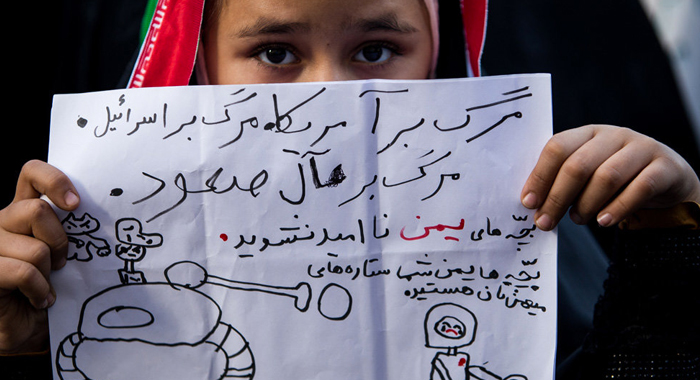 مرگ بر آمریکا. مرگ بر اسرائیل.
مرگ بر آل صعود.
بچّه های یمن نا امید نشوید.
بچّه ها یمن شما ستاره های
میهن تان هستید